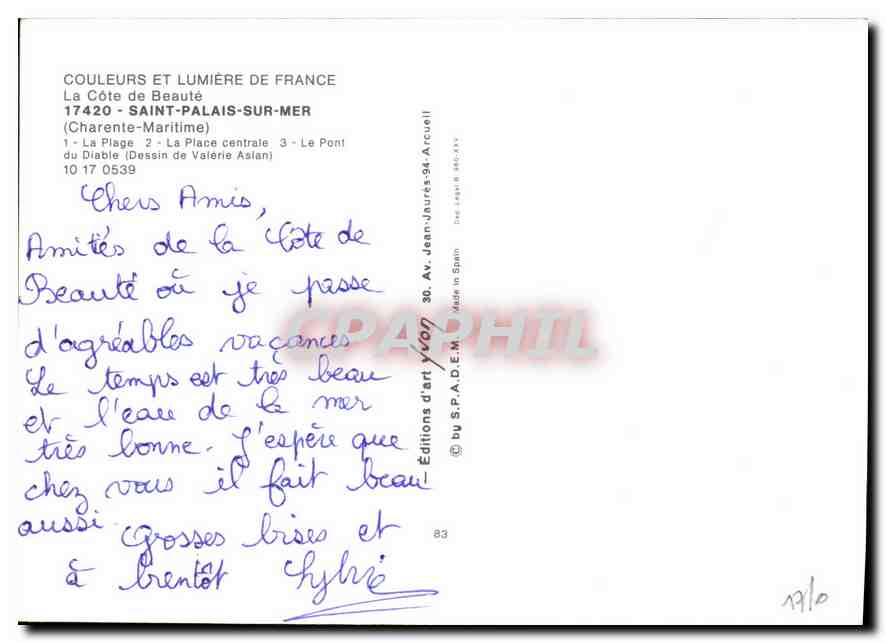 COULEURS ET LUMIÈRE DE FRANCE
La Côte de Beauté
17420 - SAINT-PALAIS-SUR-MER
(Charente-Maritime)
1 - La Plage 2 - La Place centrale 3 - Le Pont
du Diable (Dessin de Valérie Aslan)
10 17 0539
Chers Amis,
Amitiés de la Côte de
Beauté où je passe
d'agréables vacances
Le temps est très beau
et l'eau de la mer
très bonne. J'espère que
chez vous il fait beau
aussi.
Grosses bises et
à bientôt Sylvie
Éditions d'art yvon 30. Av. Jean-Jaurès-94-Arcueil
© by S.P.A.D.E.M. Made in Spain Dep. Legal B. 960-XXV
83
CPAPHIL
17/0